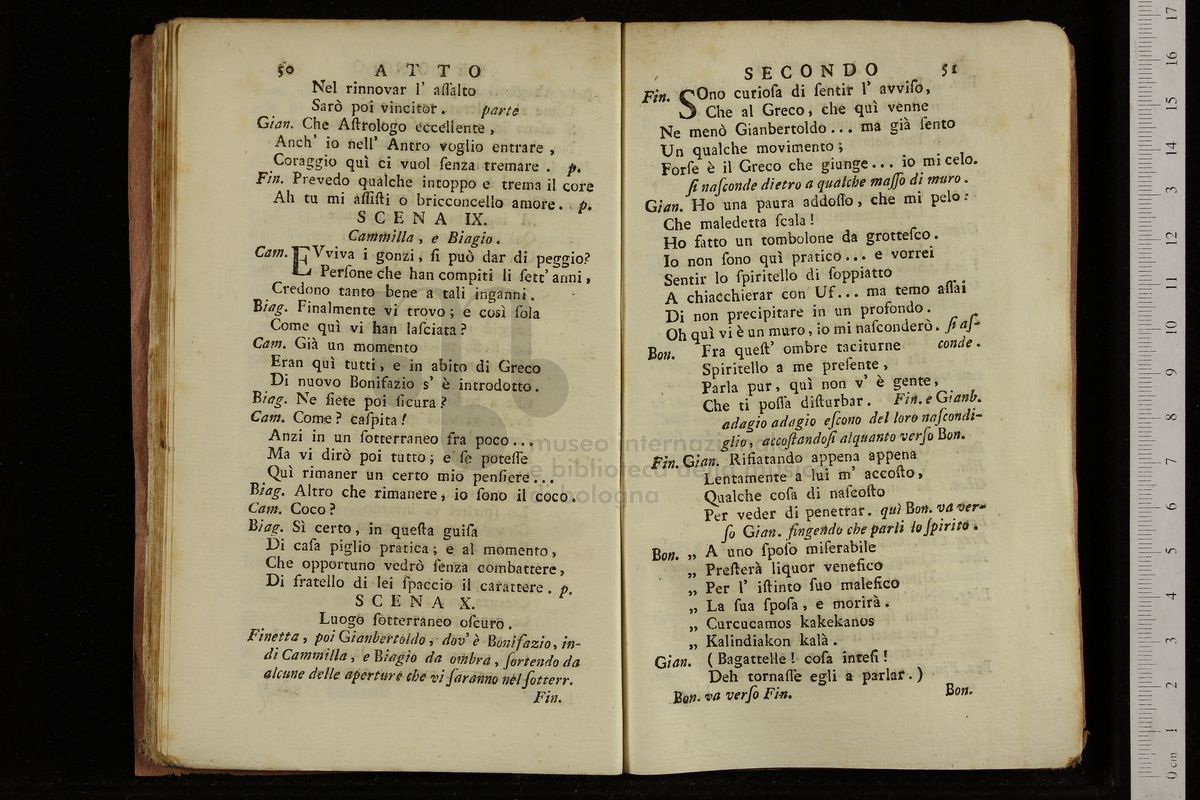 50 ATTO
Nel rinnovar l' aſſalto
Sarò poi vincitor. parte
Gian. Che Aſtrologo eccellente,
Anch' io nell' Antro voglio entrare,
Coraggio quì ci vuol ſenza tremare. p.
Fin. Prevedo qualche intoppo e trema il core
Ah tu mi aſſiſti o bricconcello amore. p.
SCENA IX.
Cammilla, e Biagio.
Cam. EVviva i gonzi, ſi può dar di peggio?
Perſone che han compiti li ſett' anni,
Credono tanto bene a tali inganni.
Biag. Finalmente vi trovo; e così ſola
Come quì vi han laſciata?
Cam. Già un momento
Eran quì tutti, e in abito di Greco
Di nuovo Bonifazio s' è introdotto.
Biag. Ne ſiete poi ſicura?
Cam. Come? caſpita!
Anzi in un ſotterraneo fra poco...
Ma vi dirò poi tutto; e ſe poteſſe
Quì rimaner un certo mio penſiere...
Biag. Altro che rimanere, io ſono il coco.
Cam. Coco?
Biag. Sì certo, in queſta guiſa
Di caſa piglio pratica; e al momento,
Che opportuno vedrò ſenza combattere,
Di fratello di lei ſpaccio il carattere. p.
SCENA X.
Luogo ſotterraneo oſcuro.
Finetta, poi Gianbertoldo, dov' è Bonifazio, in-
di Cammilla, e Biagio da ombra, ſortendo da
alcune delle aperture che vi ſaranno nel ſotterr.
Fin.
SECONDO 51
Fin. SOno curioſa di ſentir l' avviſo,
Che al Greco, che quì venne
Ne menò Gianbertoldo... ma già ſento
Un qualche movimento;
Forſe è il Greco che giunge... io mi celo.
ſi naſconde dietro a qualche maſſo di muro.
Gian. Ho una paura addoſſo, che mi pelo:
Che maledetta ſcala!
Ho fatto un tombolone da grotteſco.
Io non ſono quì pratico... e vorrei
Sentir lo ſpiritello di ſoppiatto
A chiacchierar con Uf... ma temo aſſai
Di non precipitare in un profondo.
Oh quì vi è un muro, io mi naſconderò. ſi aſ-
conde.
Bon. Fra queſt' ombre taciturne
Spiritello a me preſente,
Parla pur, quì non v' è gente,
Che ti poſſa diſturbar. Fin. e Gianb.
adagio adagio eſcono del loro naſcondi-
glio, accoſtandoſi alquanto verſo Bon.
Fin. Gian. Rifiatando appena appena
Lentamente a lui m' accoſto,
Qualche coſa di naſcoſto
Per veder di penetrar. quì Bon. va ver-
ſo Gian. fingendo che parli lo ſpirito.
Bon. „ A uno ſpoſo miſerabile
„ Preſterà liquor venefico
„ Per l' iſtinto ſuo malefico
„ La ſua ſpoſa, e morirà.
„ Curcucamos kakekanos
„ Kalindiakon kalà.
Gian. (Bagattelle! coſa inteſi!
Deh tornaſſe egli a parlar.)
Bon. va verſo Fin. Bon.
museo internazionale
e biblioteca della musica
di bologna
0 cm 1 2 3 4 5 6 7 8 9 10 11 12 13 14 15 16 17